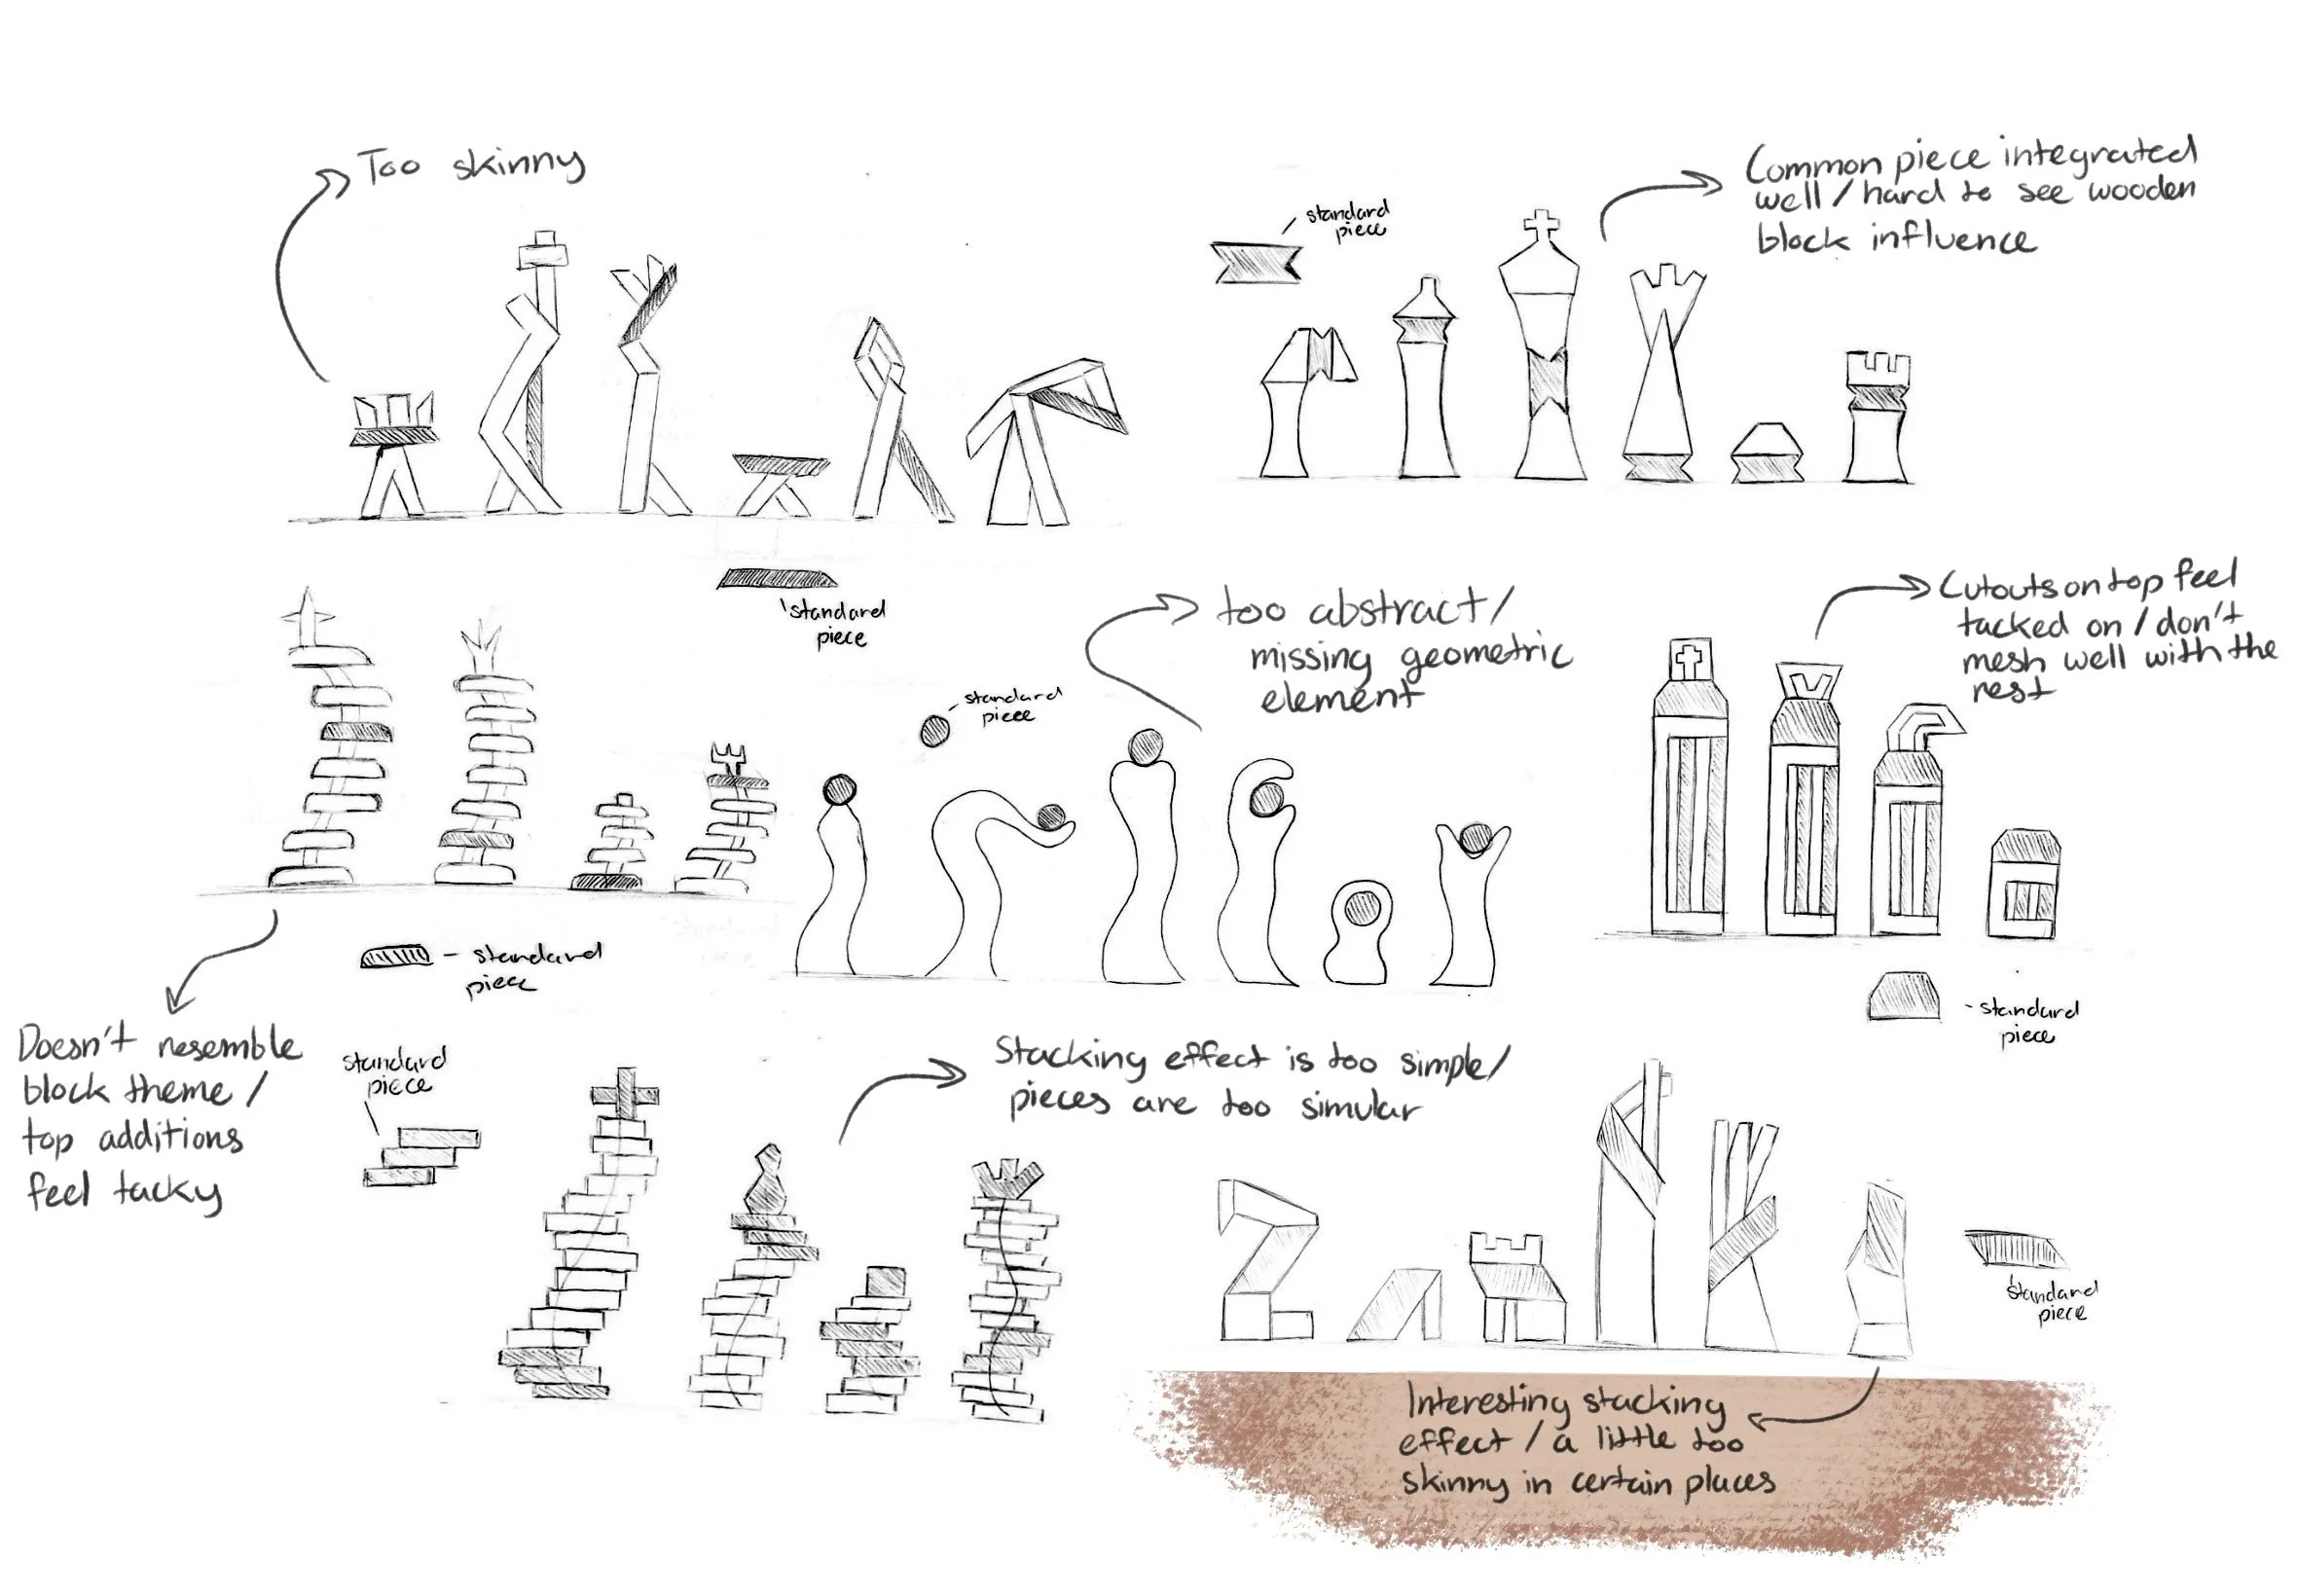 Too skinny
standard
piece
Common piece integrated
well / hard to see wooden
block influence
standard
piece
too abstract /
missing geometric
element
standard
piece
Cutouts on top feel
tacked on / don't
mesh well with the
rest
standard
piece
- standard
piece
Doesn't resemble
block theme /
top additions
feel tacky
standard
piece
Stacking effect is too simple /
pieces are too simular
standard
piece
Interesting stacking
effect / a little too
skinny in certain places